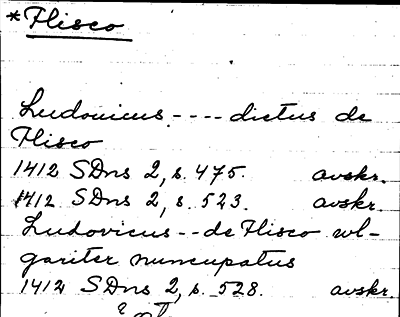 *Flisco
Ludouicus ---- dictus de
Flisco
1412 SDns 2, s. 475. avskr.
1412 SDns 2, s. 523. avskr.
Ludovicus -- de Flisco wl-
gariter nuncupatus
1412 SDns 2, s. 528. avskr.